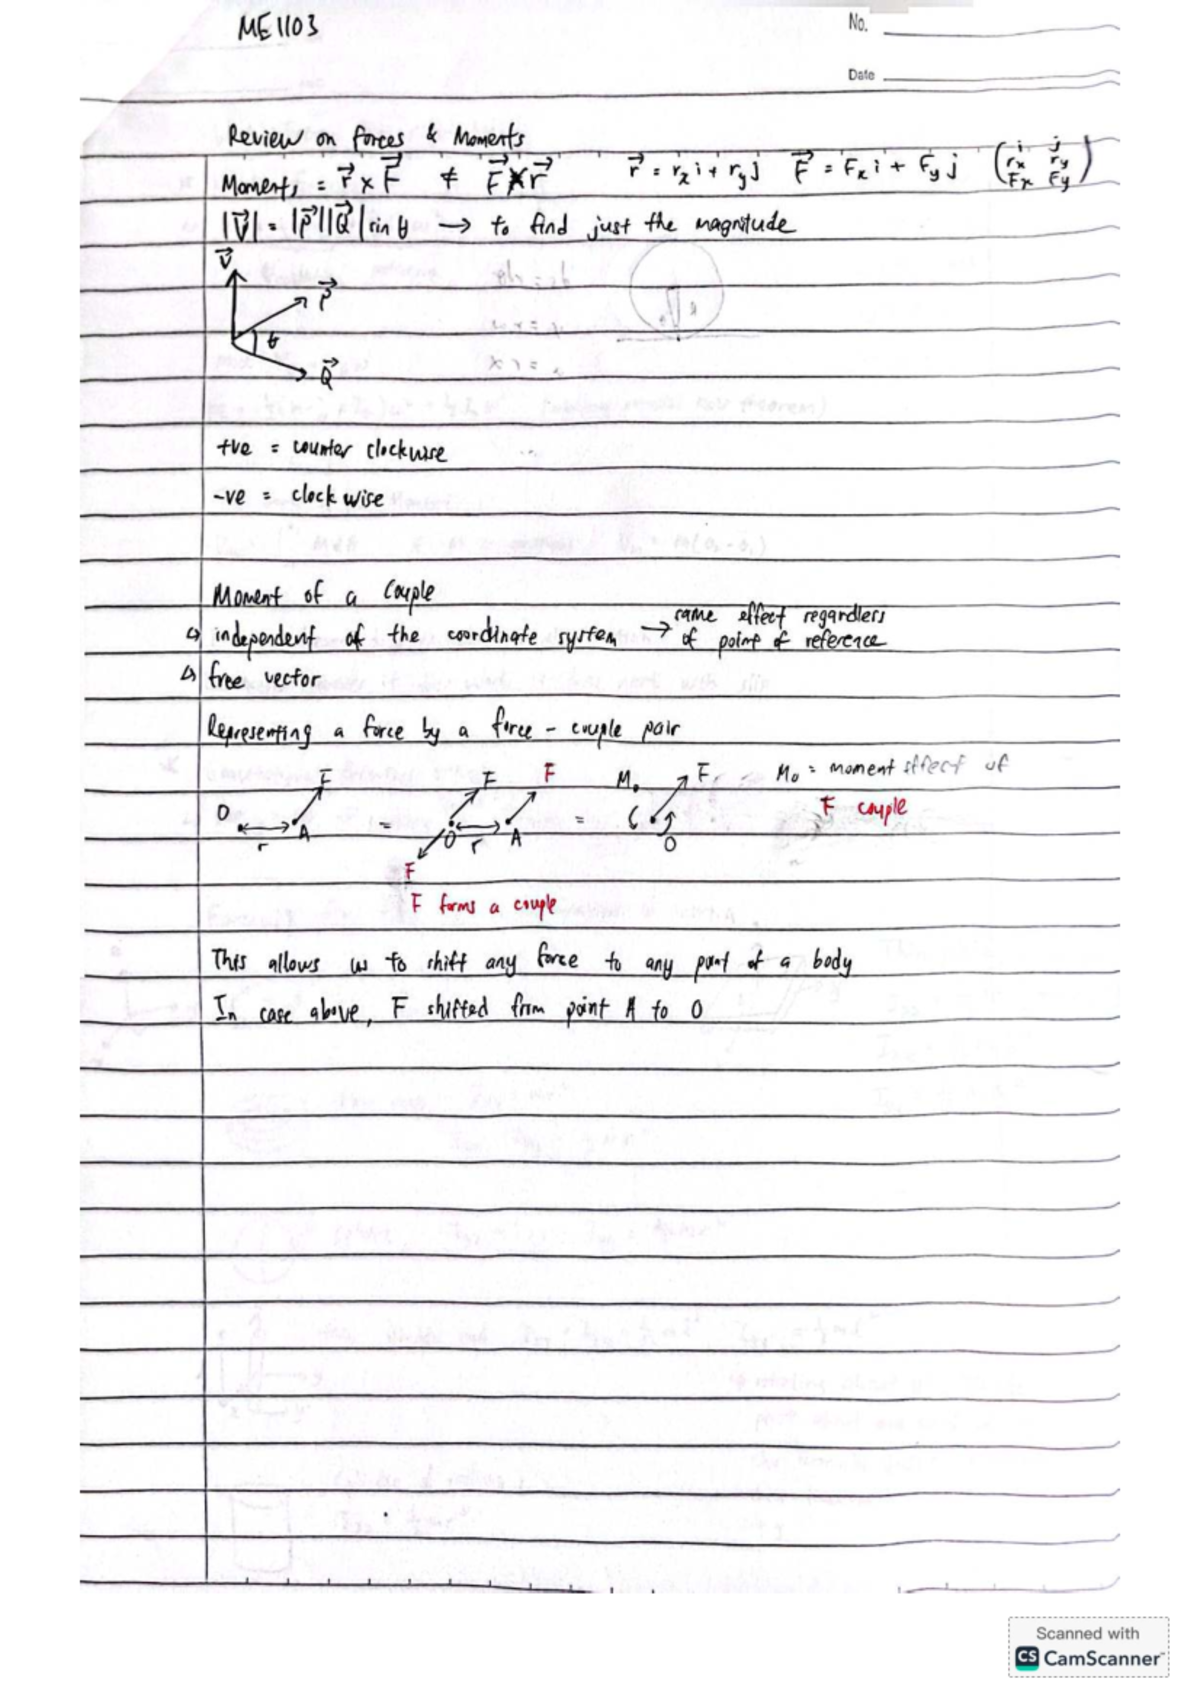 ME1103
No.
Date
Review on forces & Moments
Moments = r⃗ × F⃗ ≠ F⃗ × r⃗    r⃗ = rₓi + r_y j    F⃗ = Fₓi + F_y j    ( i j
rₓ r_y
Fₓ F_y )
|V⃗| = |P⃗||Q⃗| sin θ → to find just the magnitude
V⃗
P⃗
θ
Q⃗
+ve = counter clockwise
-ve = clockwise
Moment of a Couple
↳ independent of the coordinate system → same effect regardless of point of reference
↳ free vector
Representing a force by a force - couple pair
F F F M₀ F M₀ = moment effect of
O A = O r A = O F couple
r
F
F forms a couple
This allows us to shift any force to any point of a body
In case above, F shifted from point A to O
Scanned with
CS CamScanner